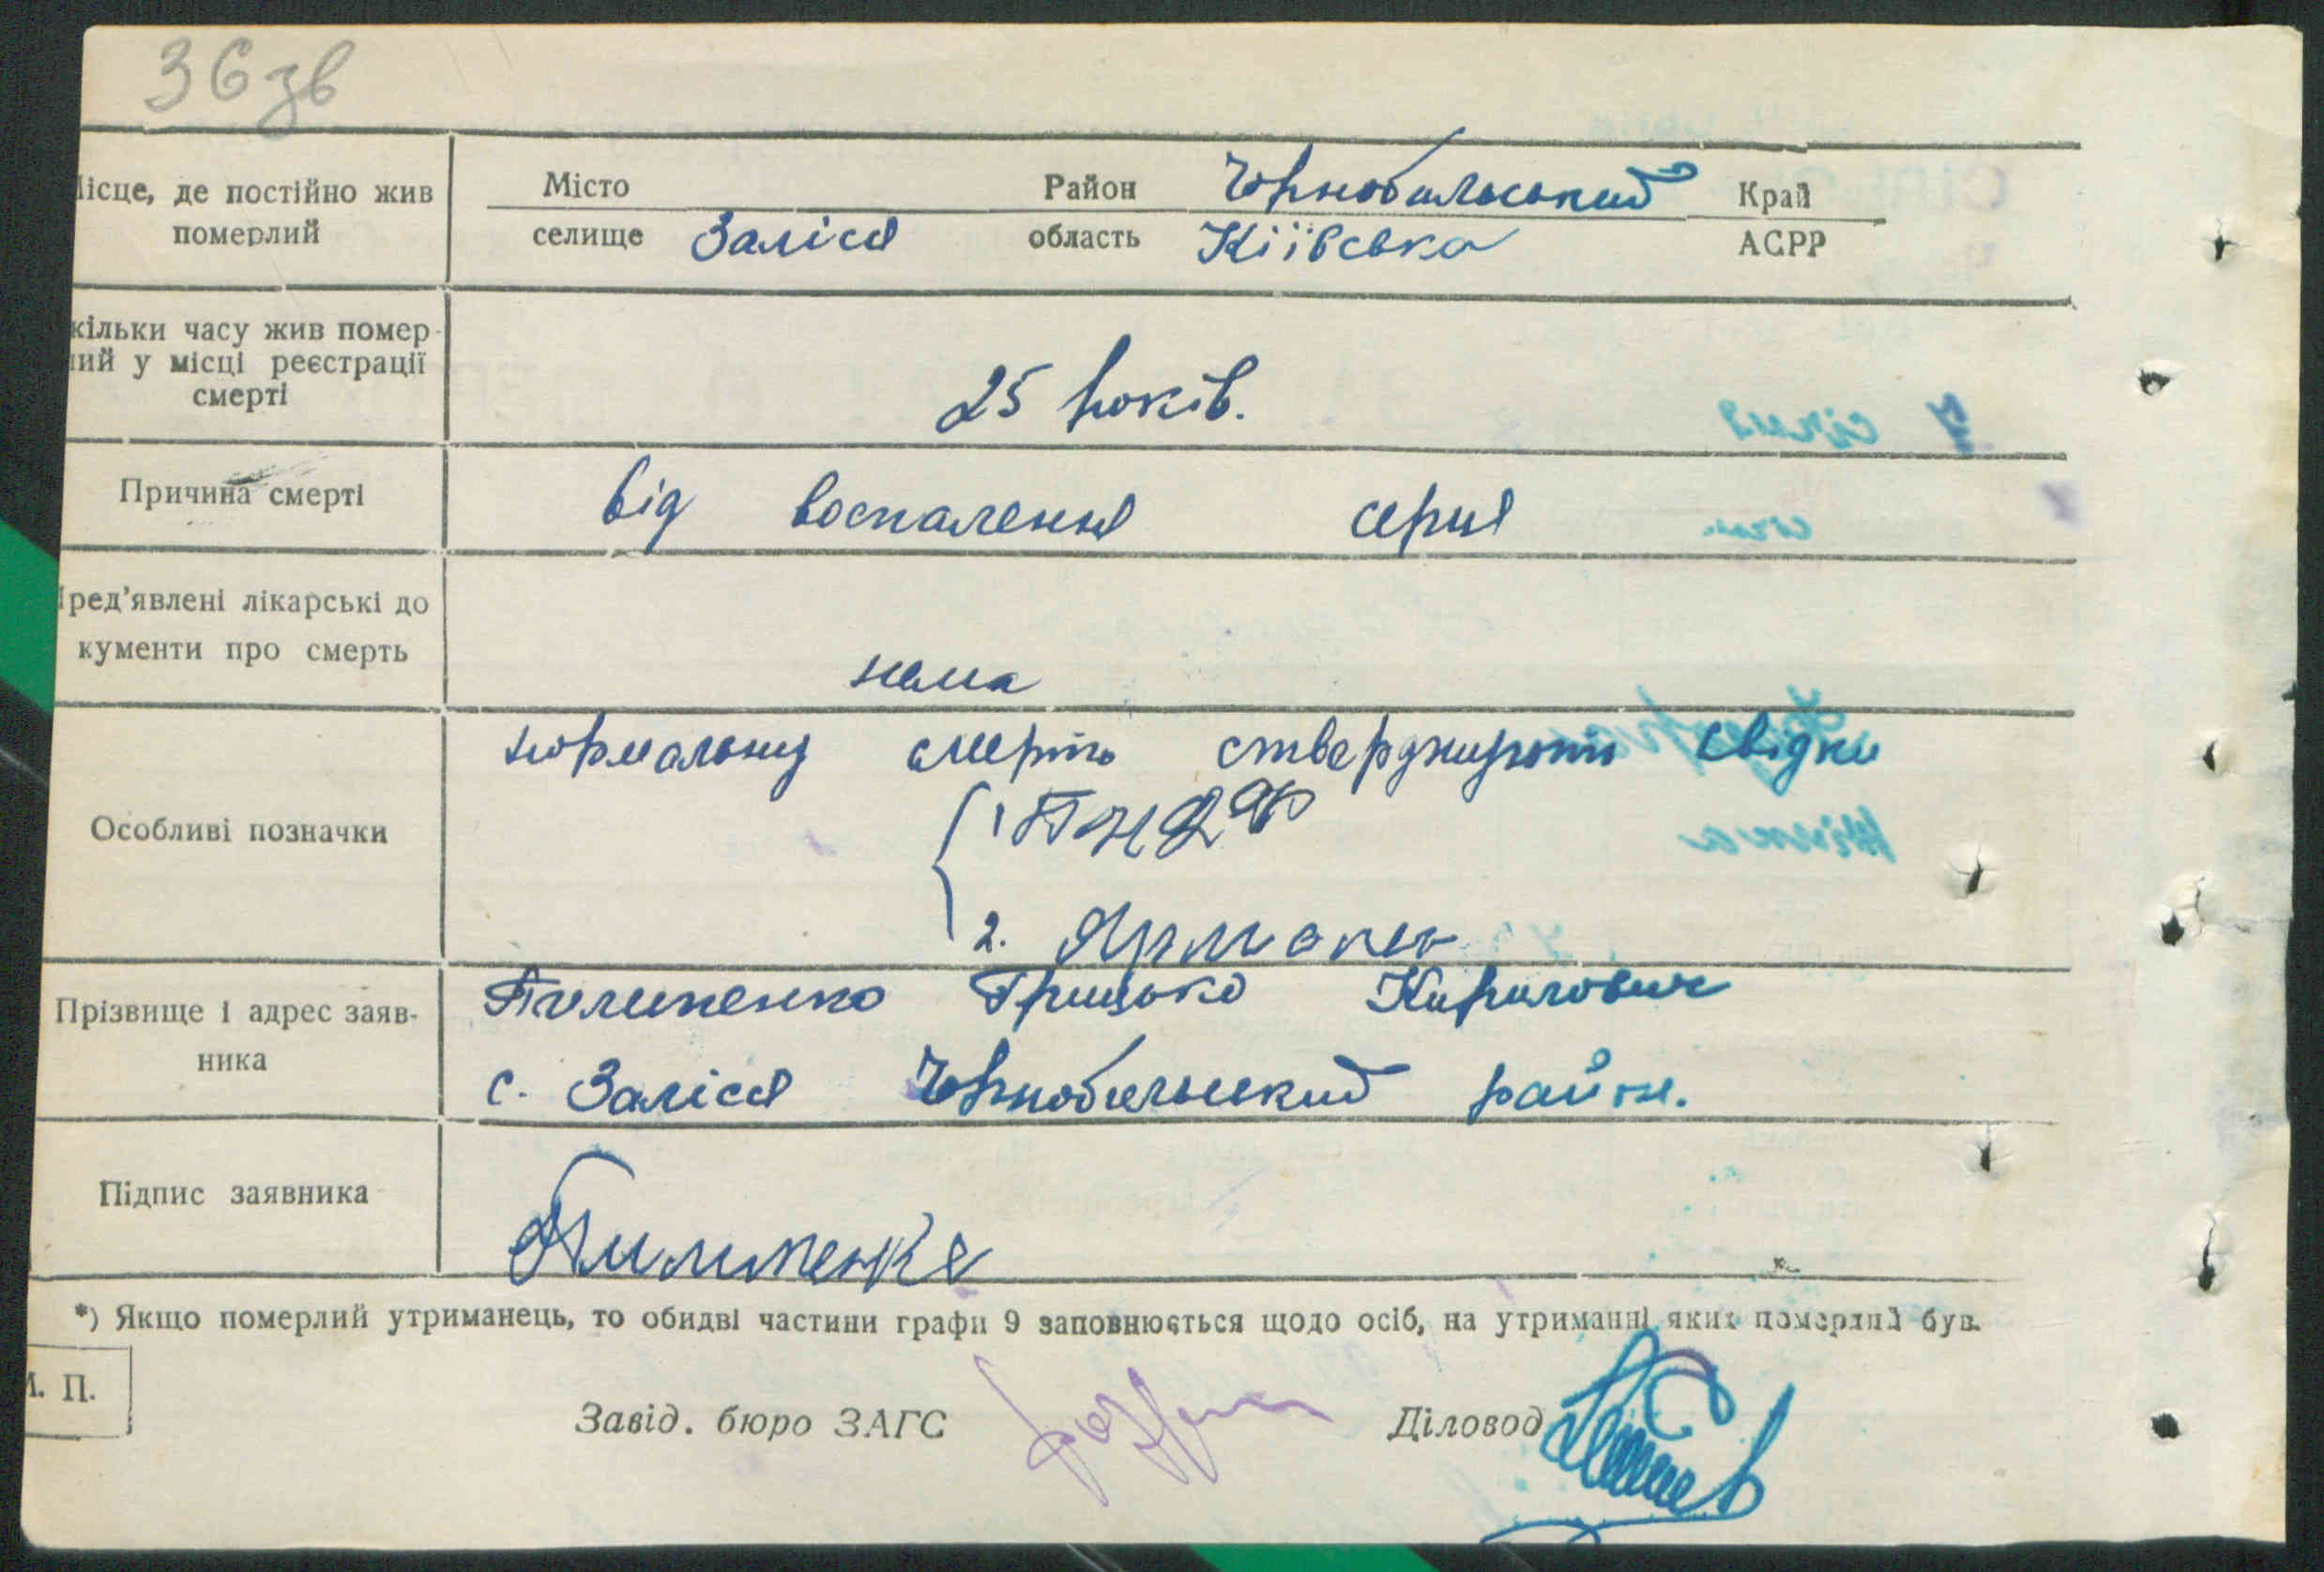 36зв
Місце, де постійно жив
померлий
Місто
Район Чорнобильський
Край
селище Залісся
область Кіївська
АСРР
кільки часу жив помер-
лий у місці реєстрації
смерті
25 років.
Причина смерті
від воспалення серця
Пред'явлені лікарські до
кументи про смерть
нема
Особливі позначки
нормальну смерть стверджують свідки
1
2. Ярмоленко
Прізвище і адрес заяв-
ника
Пилипенко Грицько Кирилович
с. Залісся Чорнобильський район.
Підпис заявника
Пилипенко
*) Якщо померлий утриманець, то обидві частини графи 9 заповнюється щодо осіб, на утриманні яких померлий був.
М. П.
Завід. бюро ЗАГС
Діловод